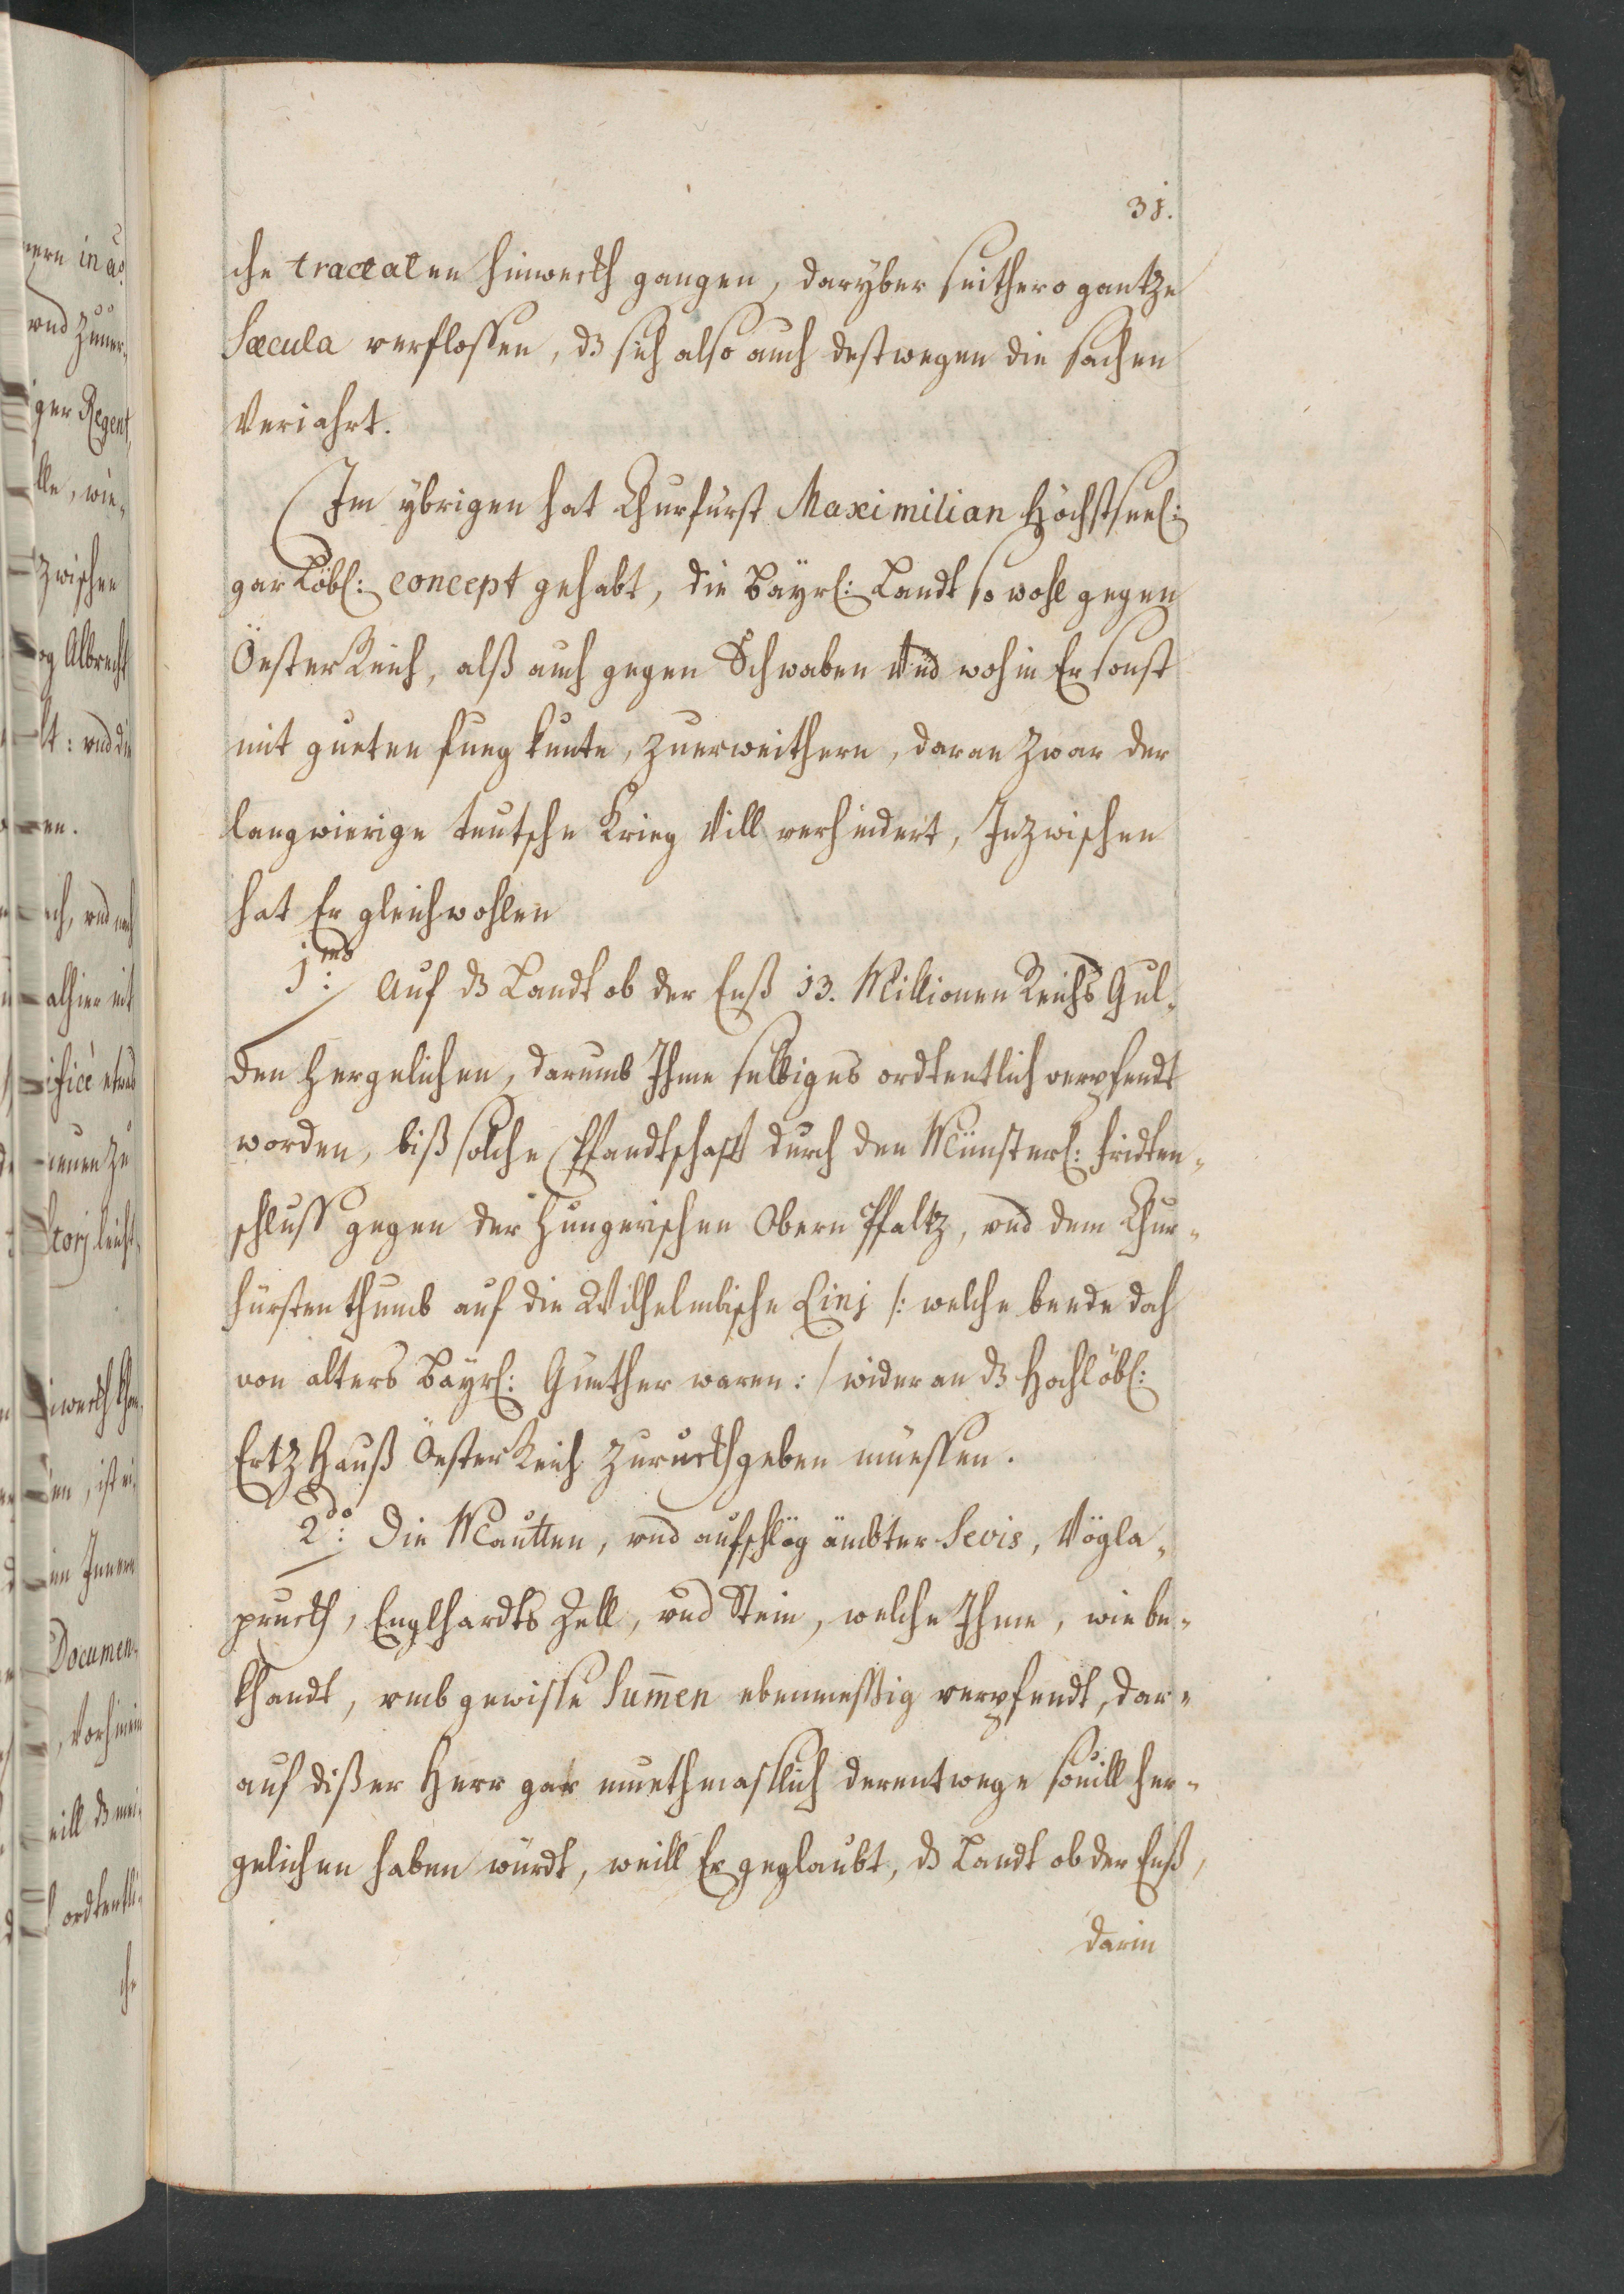 31.
che tractaten hinwerkh gangen, daryber seithero gantze
Sæcula verflossen, dz sich also auch destwegen die sachen
Veriahrt.
Im ybrigen hat Churfürst Maximilian Höchstseel:
gar Löbl: concept gehabt, die Bayrl: Landt so wohl gegen
ÖesterReich, alß auch gegen Schwaben Vnd wohin Er sonst
mit gueten fueg kunte, zuerweithern, daran zwar der
langwierige teutsche Krieg Vill verhindert, Inzwischen
hat Er gleichwohlen
1mo: Auf dz Landt ob der Enß 13. Millionen Reichs Gul-
den hergelichen, darumb Ihme selbiges ordtentlich verpfendt
worden, biß solche Pfandtschafft durch den Münsterl: fridten-
schluss gegen der Hungerischen Obern Pfaltz, vnd dem Chur-
fürstenthumb auf die Wilhelmbische Linj /: welche beede doch
von alters Bayrl: Güether waren :/ wider an dz Hochlöbl:
ErtzHauß ÖesterReich zuruckhgeben müessen.
2do: Die Mautten, vnd aufschlög ämbter Sevis, Vögla-
pruckh, Englhardts Zell, vnd Stein, welche Ihme, wie be-
khandt, vmb gewisse Sum̄en ebenmessig verpfendt, dar-
auf dißer Herr gar muethmasslich derentwege souill her-
gelichen haben würdt, weill Er geglaubt, dz Landt ob der Enß,
darin